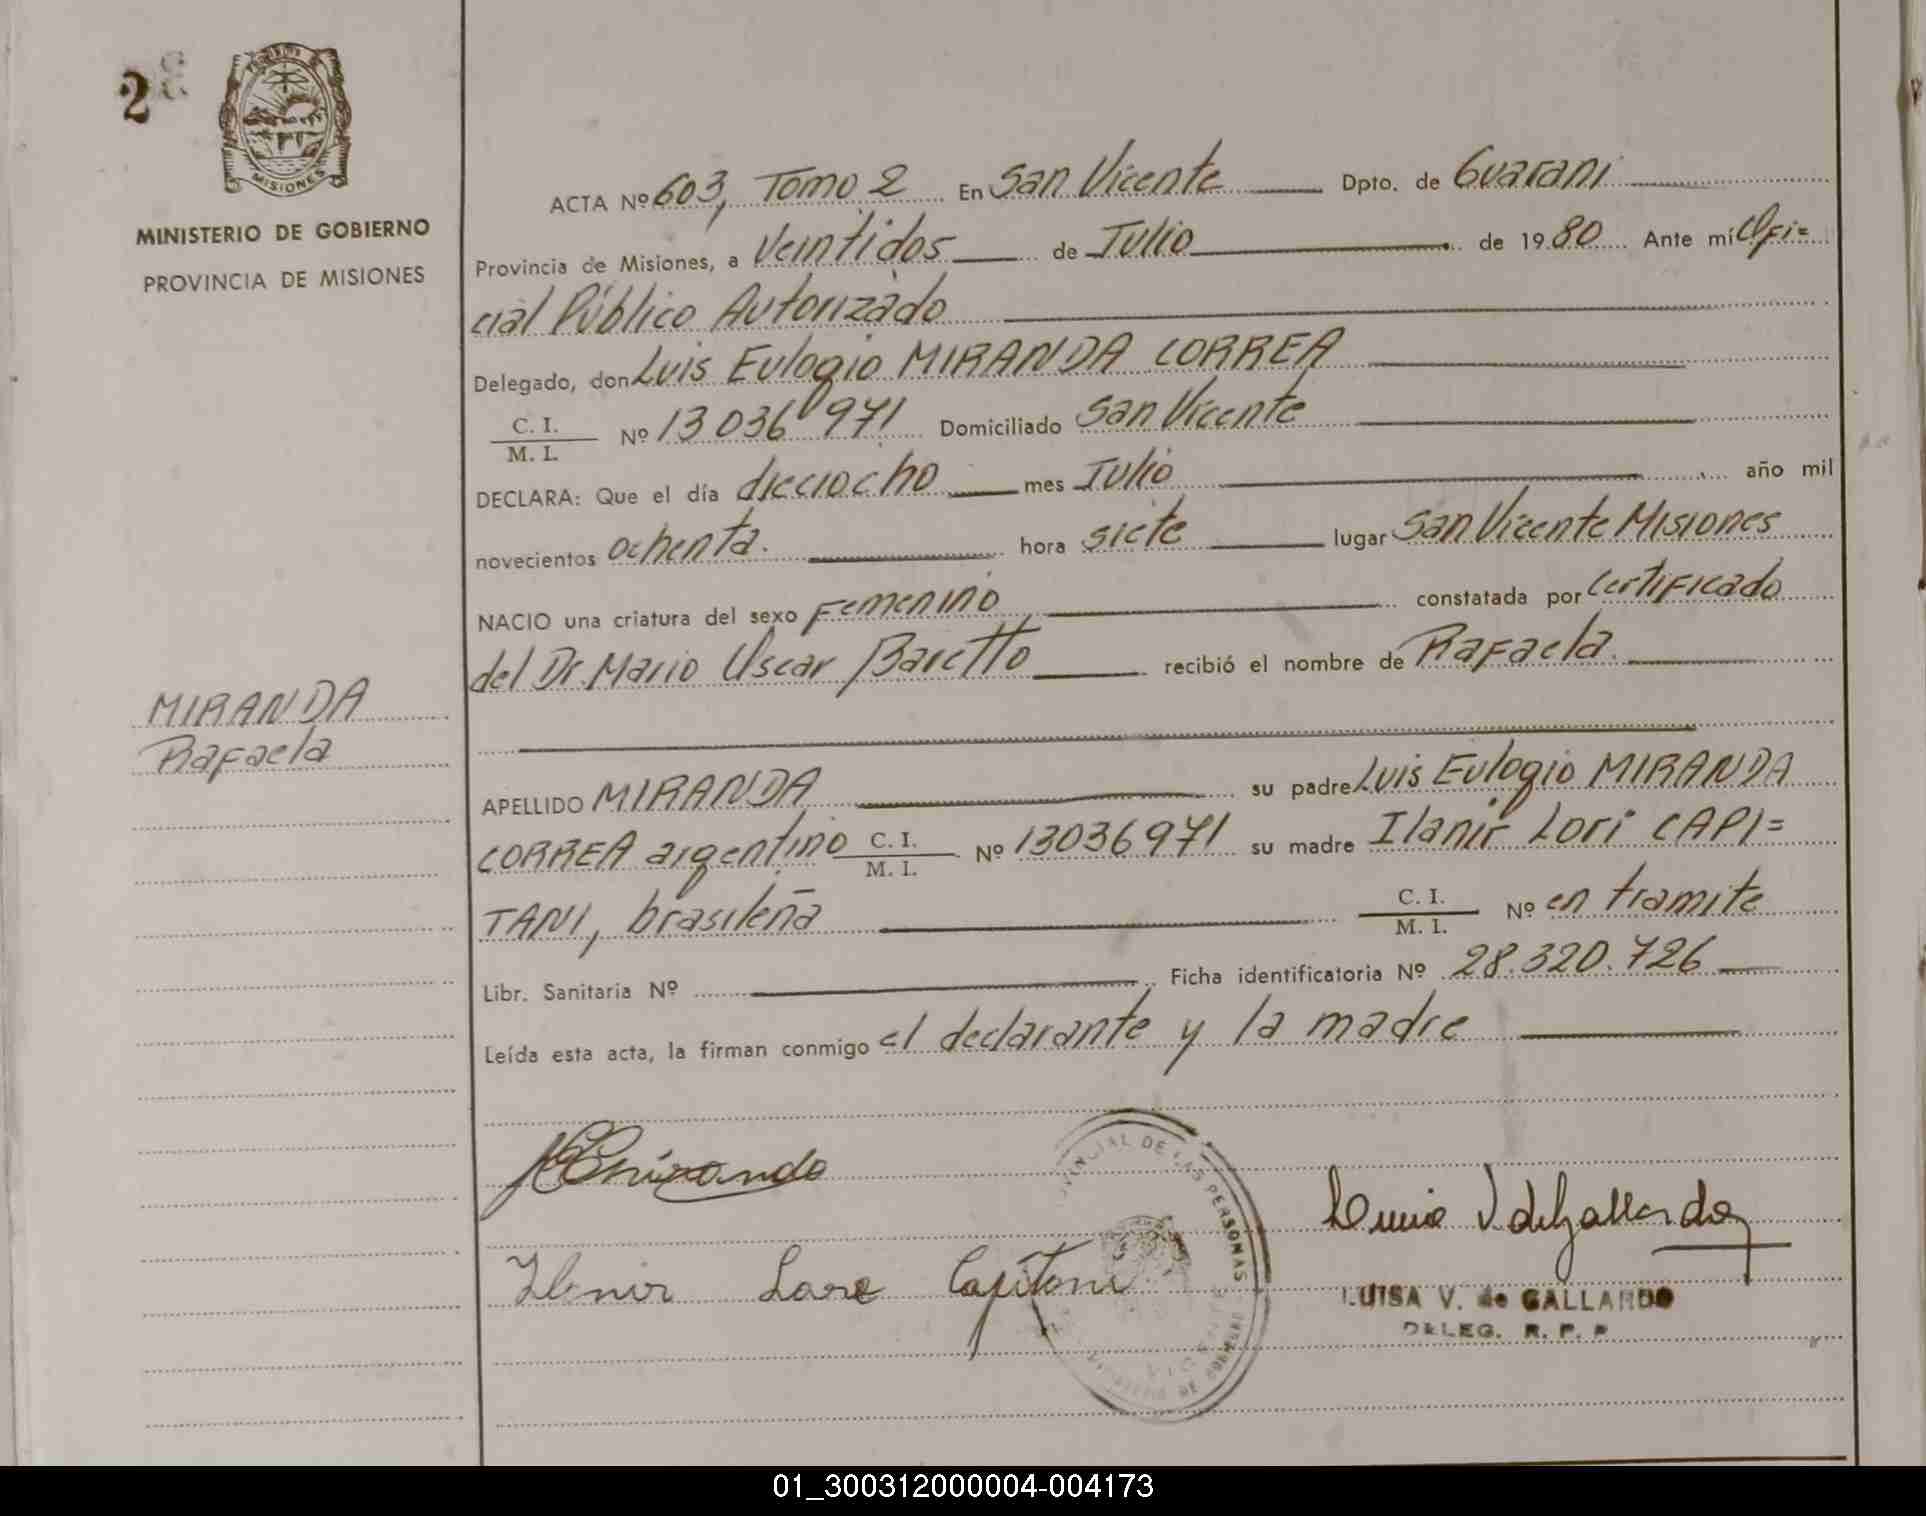 2
MISIONES
MINISTERIO DE GOBIERNO
PROVINCIA DE MISIONES
ACTA Nº 603, Tomo 2 En San Vicente Dpto. de Guarani
Provincia de Misiones, a Veintidos de Julio de 1980 Ante mí Ofi=
cial Público Autorizado
Delegado, don Luis Eulogio MIRANDA CORREA
C. I. / M. I. Nº 13036971 Domiciliado San Vicente
DECLARA: Que el día dieciocho mes Julio año mil
novecientos ochenta. hora siete lugar San Vicente Misiones
NACIO una criatura del sexo Femenino constatada por Certificado
del Dr. Mario Oscar Baretto recibió el nombre de Rafaela.
MIRANDA
Rafaela
APELLIDO MIRANDA su padre Luis Eulogio MIRANDA
CORREA argentino C. I. / M. I. Nº 13036971 su madre Ilanir Lori CAPI=
TANI, brasileña C. I. / M. I. Nº en tramite
Libr. Sanitaria Nº Ficha identificatoria Nº 28.320.726
Leída esta acta, la firman conmigo el declarante y la madre
PROVINCIAL DE LAS PERSONAS
LUISA V. de GALLARDO
DELEG. R. P. P
01_300312000004-004173